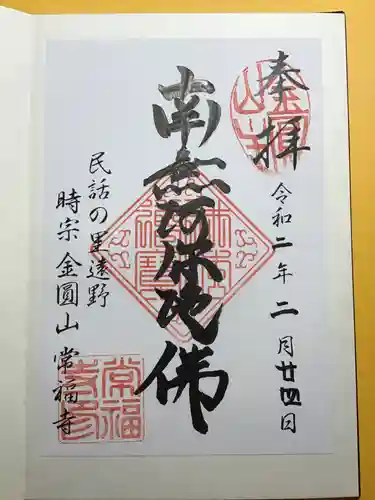 奉拝
令和二年二月廿四日
南無阿弥陀佛
民話の里遠野
時宗 金圓山 常福寺
常福
寺印